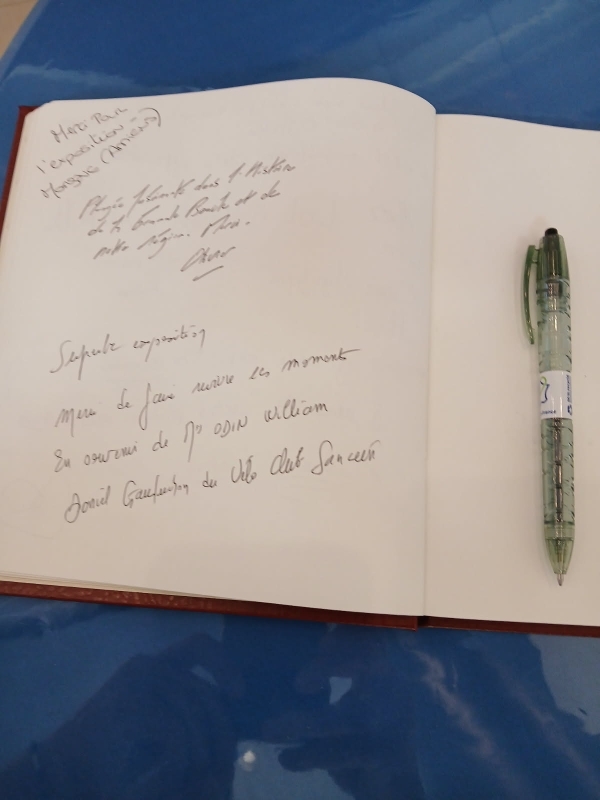 Merci Pour
l'exposition -
(Amiens)
Plongée dans l'Histoire
de la Grande Boucle et de
notre région. Merci.
Superbe exposition
Merci de faire revivre ces moments
En souvenir de Mr ODIN William
Daniel du Vélo Club